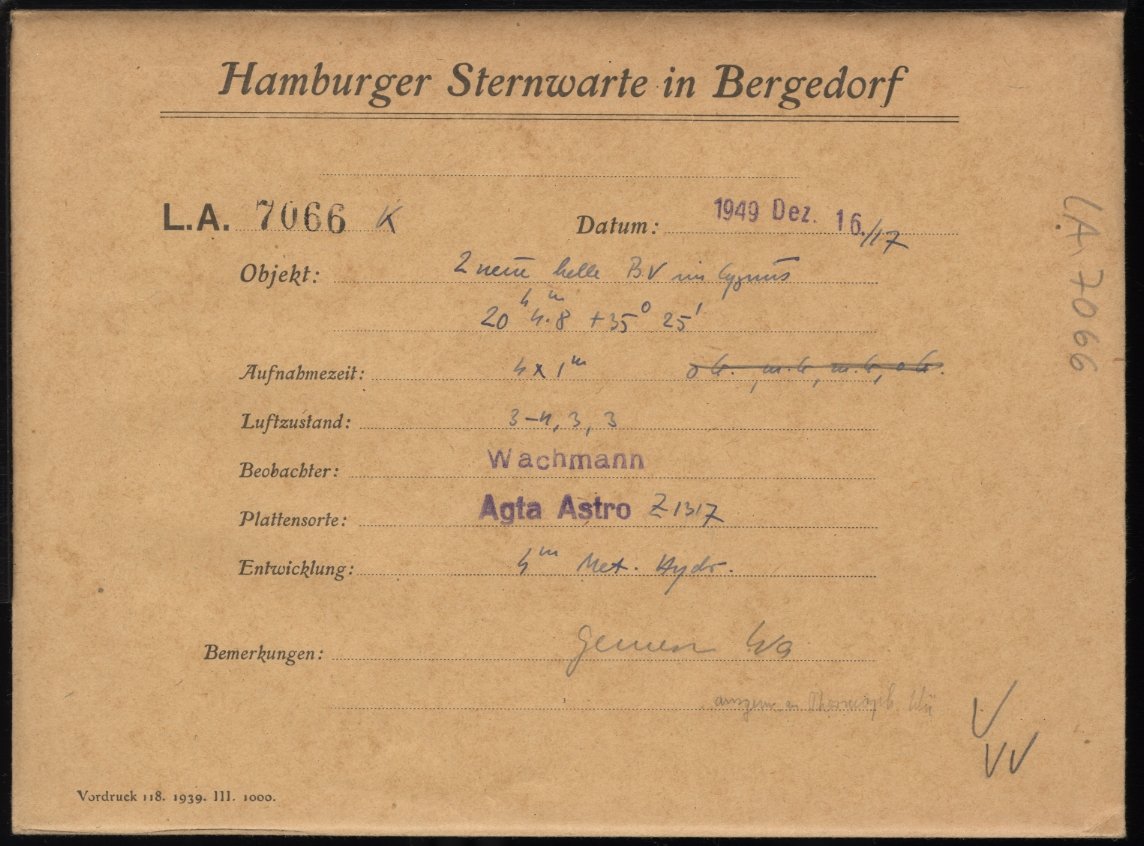 Hamburger Sternwarte in Bergedorf
L.A. 7066 K Datum: 1949 Dez. 16./17
Objekt: 2 neue helle BV im Cygnus
20ʰ 4.ᵐ8 +35° 25'
Aufnahmezeit: 4 x 1ᵐ
Luftzustand: 3-4, 3, 3
Beobachter: Wachmann
Plattensorte: Agfa Astro Z1317
Entwicklung: 4ᵐ Met. Hydr.
Bemerkungen: gemessen Wa
V
VV
Vordruck 118. 1939. III. 1000.
LA. 7066